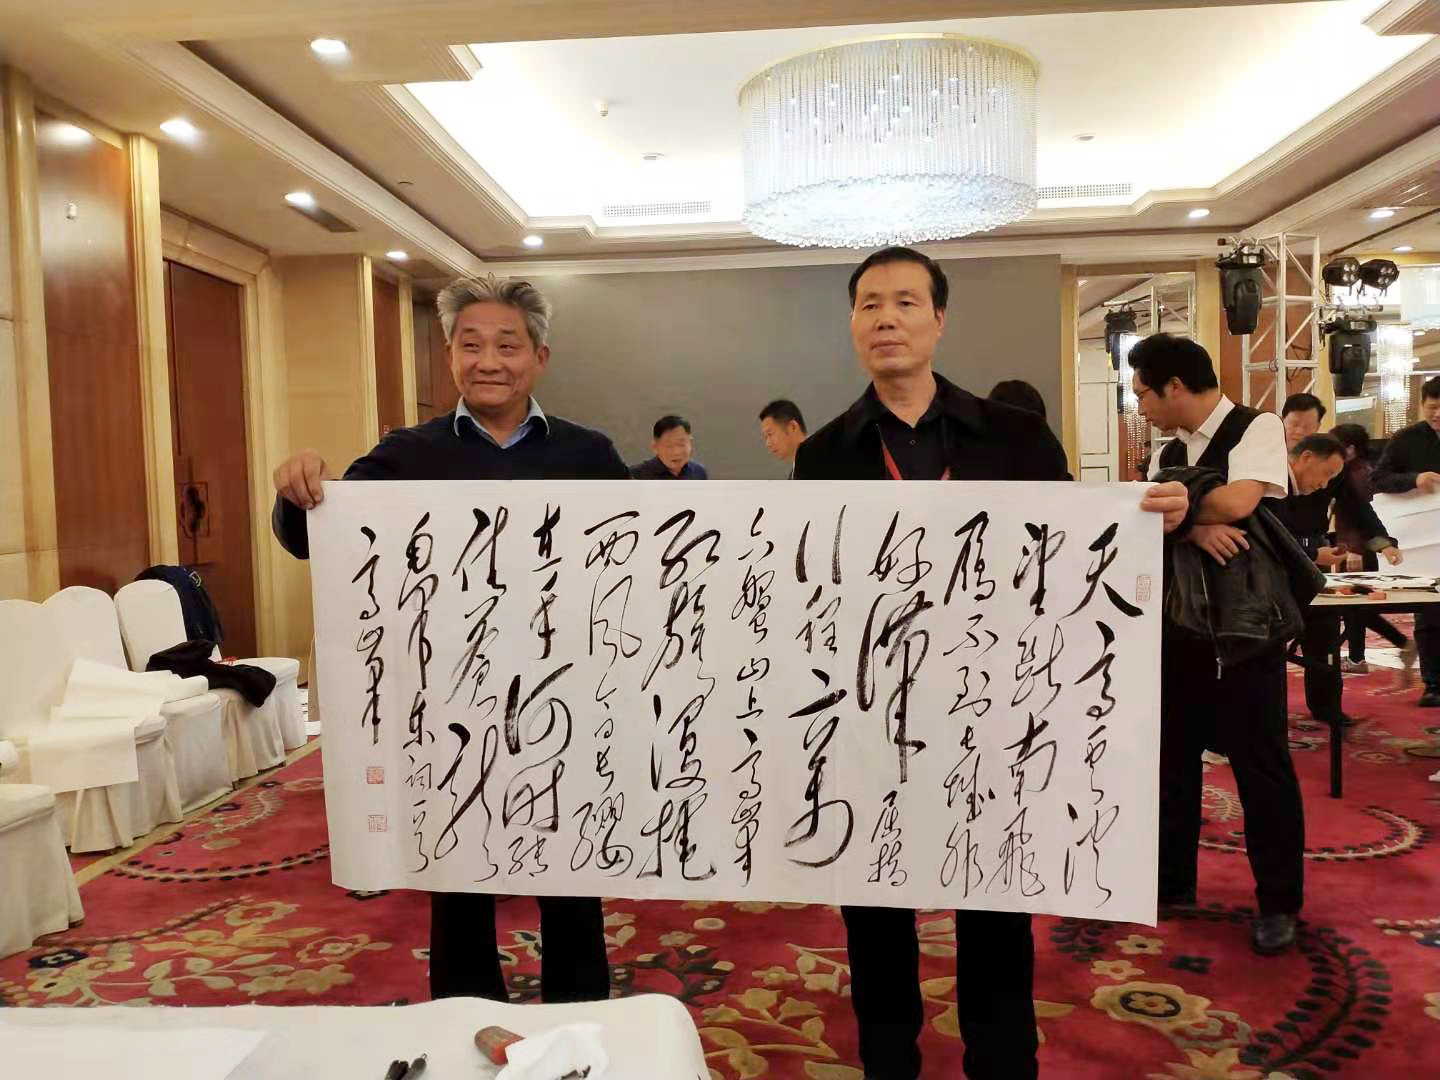 天高云淡
望断南飛
雁不到长城非
好漢屈指
行程二万
六盤山上高峯
红旗漫捲
西风今日长缨
在手何时缚
住苍龙
东词一首
高峯